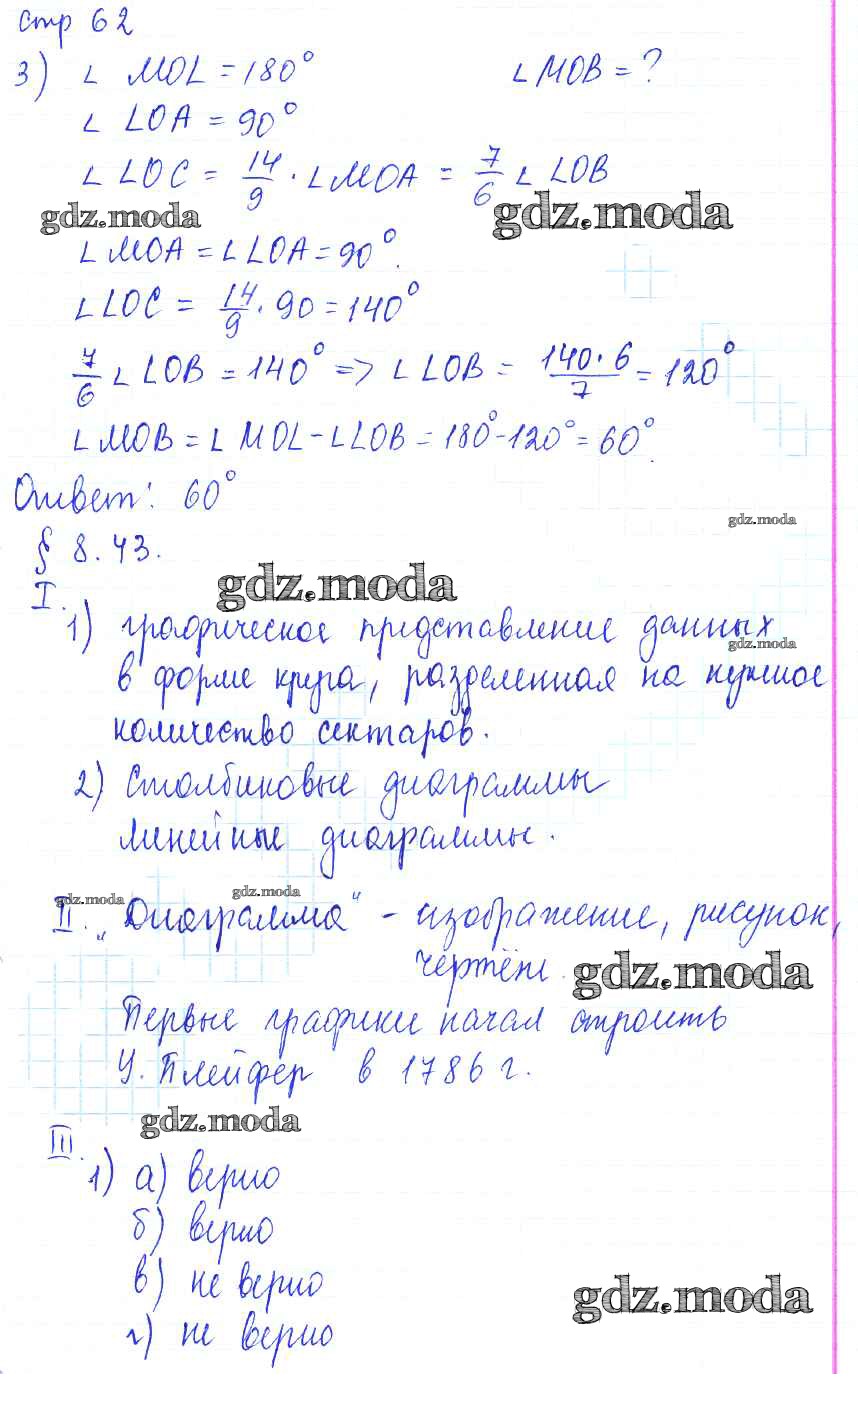 Стр 62
3) ∠ MOL = 180° ∠ MOB = ?
∠ LOA = 90°
∠ LOC = 14/9 · ∠MOA = 7/6 ∠ LOB
gdz.moda gdz.moda
∠ MOA = ∠ LOA = 90°.
∠ LOC = 14/9 · 90 = 140°
7/6 ∠ LOB = 140° => ∠ LOB = 140·6/7 = 120°
∠ MOB = ∠ MOL - ∠LOB = 180° - 120° = 60°.
Ответ: 60°
gdz.moda
§ 8.43.
gdz.moda
I. 1) графическое представление данных
gdz.moda
в форме круга, разделенная на нужное
количество сектаров.
2) Столбиковые диаграммы
линейные диаграммы.
gdz.moda gdz.moda
II. „Диаграмма“ - изображение, рисунок,
чертёж.
gdz.moda
Первые графики начал строить
У. Плейфер в 1786 г.
gdz.moda
III. 1) а) верно
б) верно
в) не верно
gdz.moda
г) не верно